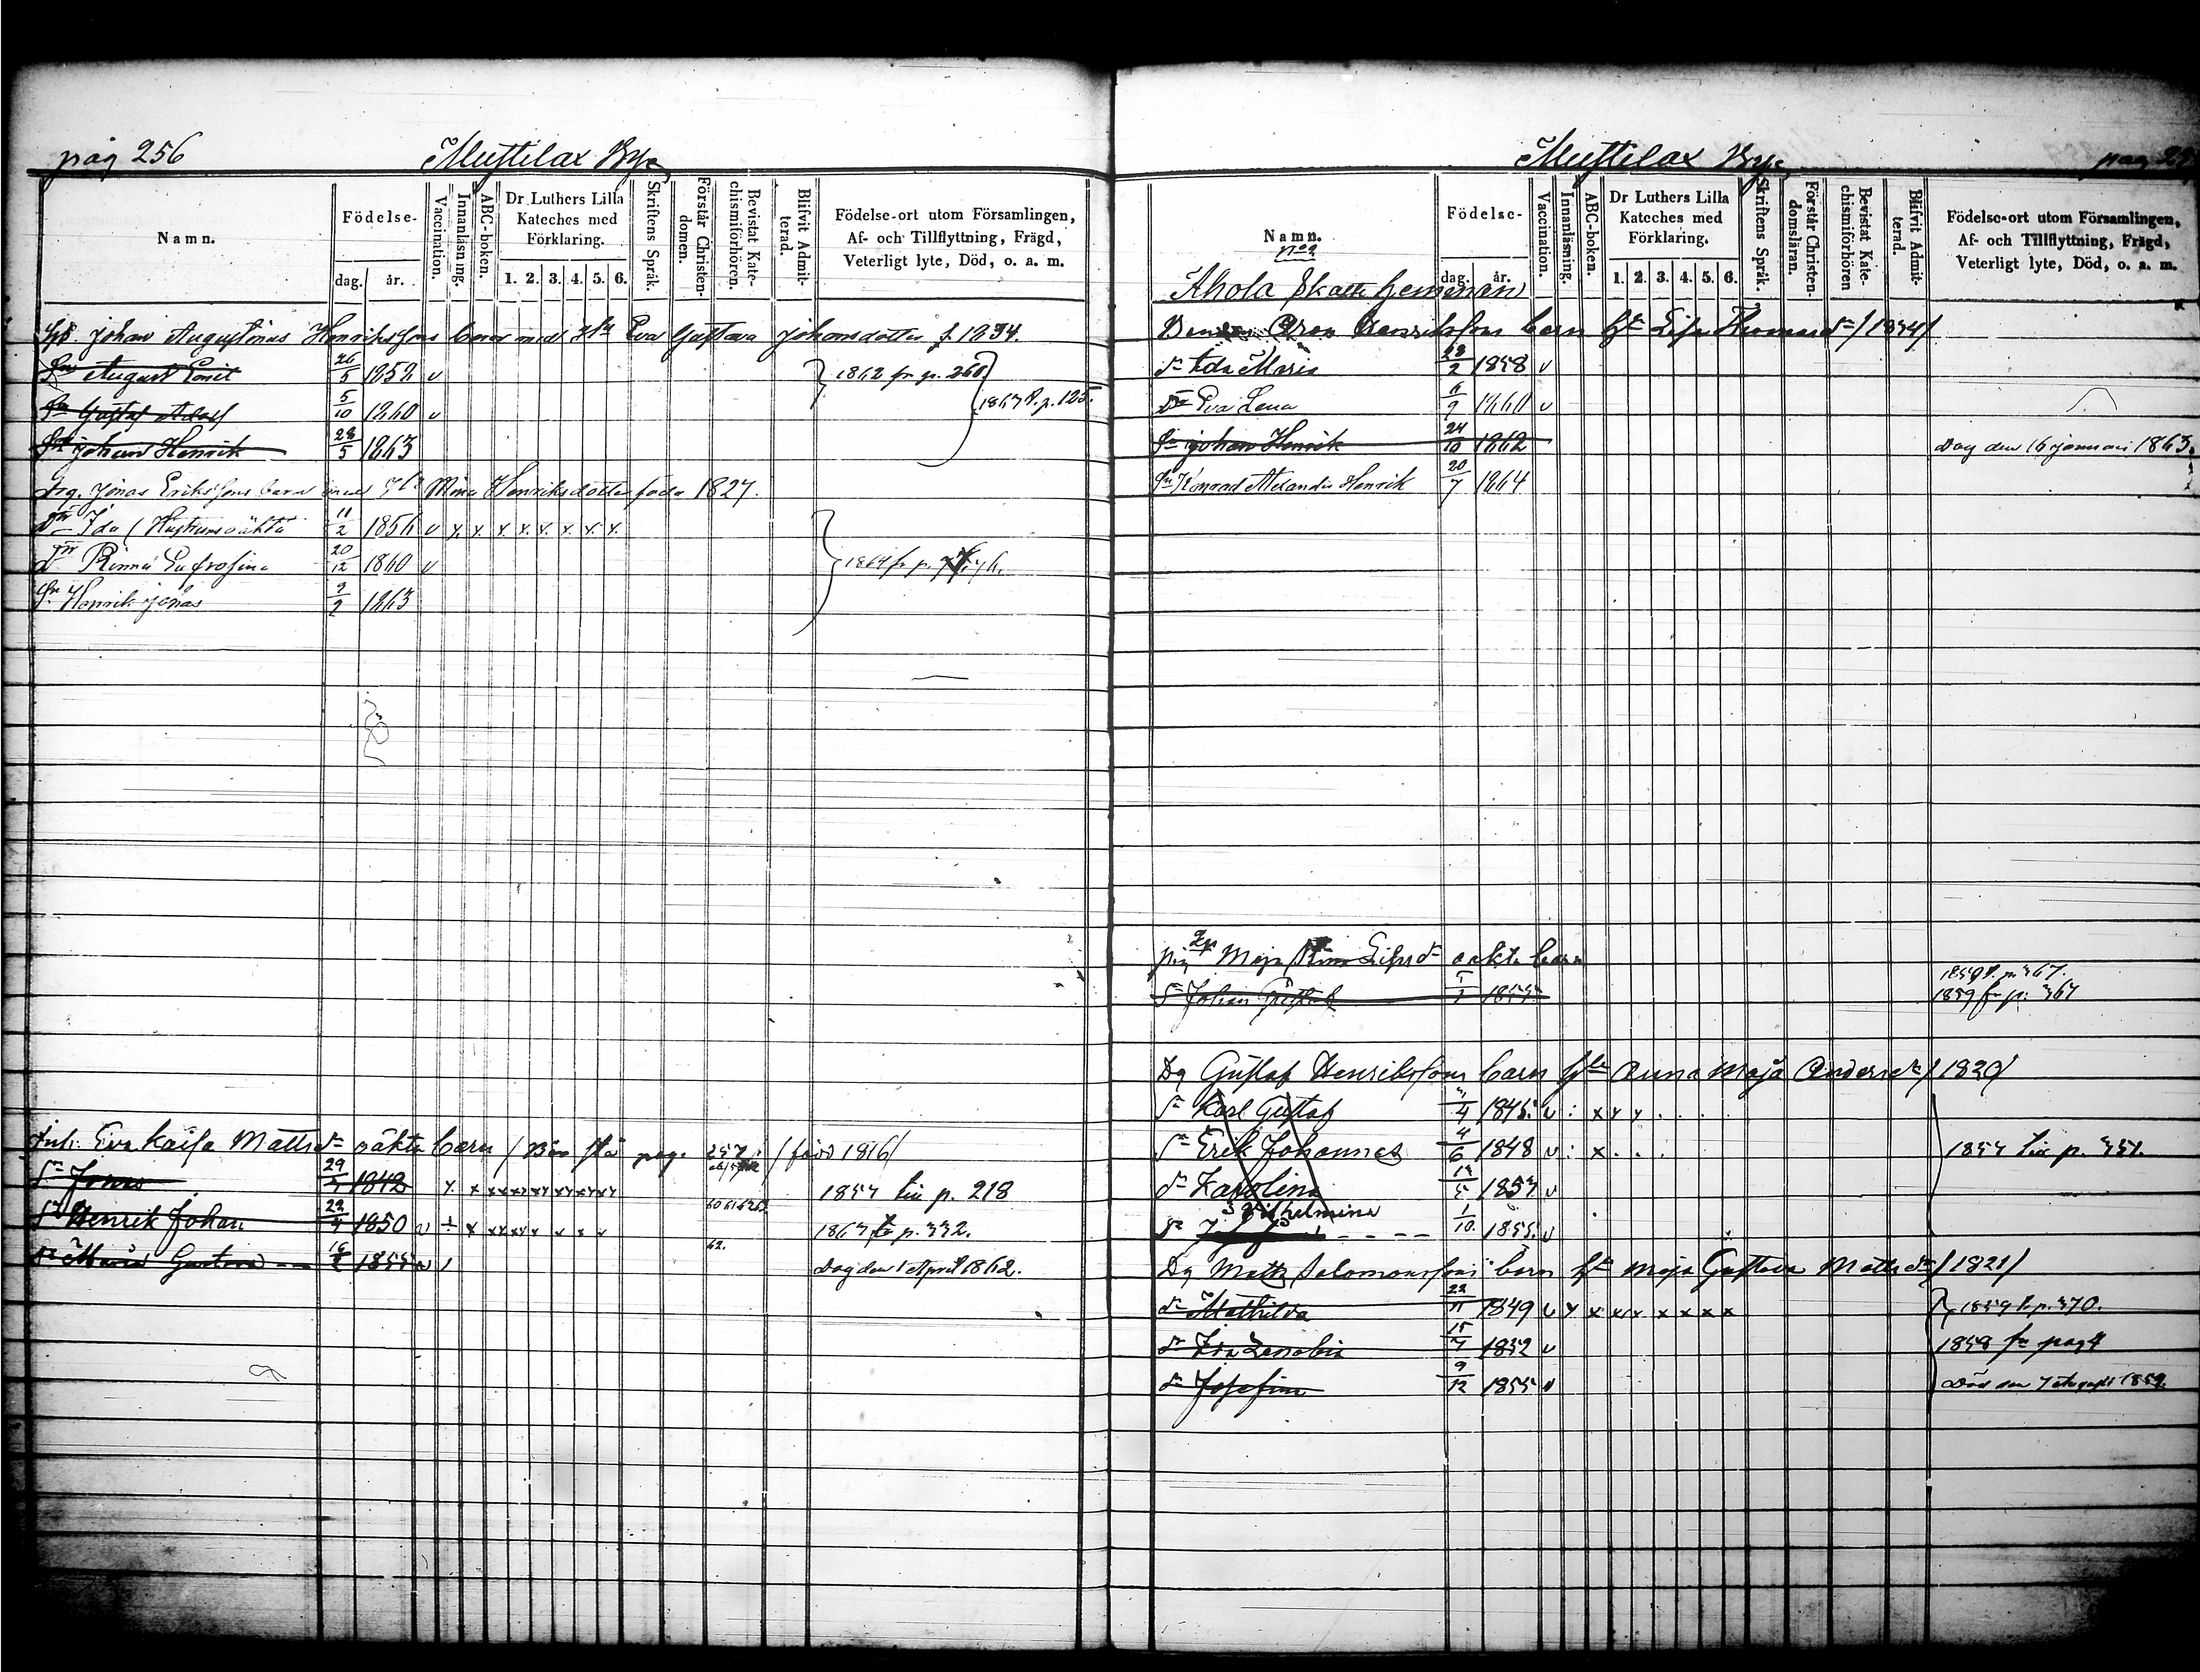 pag 256
Muttilax By
Namn.
Födelse-
dag. år.
Vaccination.
Innanläsning.
ABC-boken.
Dr Luthers Lilla Kateches med Förklaring.
1. 2. 3. 4. 5. 6.
Skriftens Språk.
Förstår Christendomen.
Bevistat Katechismiförhören.
Blifvit Admitterad.
Födelse-ort utom Församlingen, Af- och Tillflyttning, Frägd, Veterligt lyte, Död, o. a. m.
Johan Augustinus Henrikssons barn med Eva Gustava Johansdotter f. 1834.
Sn August Emil 26/5 1852 v 1862 fr p. 260
Sn Gustaf Adolf 5/10 1860 v 1867 t. p. 125.
Sn Johan Henrik 28/5 1863
Drg. Jonas Erikssons barn med Mina Henriksdotter föda 1827.
Dr Ida (Hustruns oäkta 11/2 1856 v x x x x x x x x
Dr Eufrosina 20/12 1860 v
Sn Henrik Jonas 9/9 1863
Inh. Eva Kaisa Mattsdr oäkta barn / pag. 257. / född 1816/
Sn Jonas 29/ 1842 1857 till p. 218
Sn Henrik Johan 1850 v 1867 t p. 332.
Dr Maria Gustava 16/ 1855 v Dog den 1 April 1862.
Muttilax By
pag
Namn.
Födelse-
dag. år.
Vaccination.
Innanläsning.
ABC-boken.
Dr Luthers Lilla Kateches med Förklaring.
1. 2. 3. 4. 5. 6.
Skriftens Språk.
Förstår Christendomsläran.
Bevistat Katechismiförhören
Blifvit Admitterad.
Födelse-ort utom Församlingen, Af- och Tillflyttning, Frägd, Veterligt lyte, Död, o. a. m.
No 2
Ahola Skatte hemman
Henrikssons barn Lisa Thomasdr / 1834/
dr Ida Maria 28/2 1858 v
Dr Eva Lena 6/9 1860 v
Sn Johan Henrik 24/10 1862 Dog den 16 Januari 1863.
Sn Konrad Alexander Henrik 20/7 1864
pig Maja oäkta barn
Sn Johan Gustaf 1855 1859 t. p. 367.
1859 fr p: 367
Dg Gustaf Henrikssons barn Anna Maja Andersdr / 1820/
Sn Karl Gustaf 1845. v : x x x
Sn Erik Johannes 4/6 1848 v : x . . . 1857 till p. 351.
dr Karolina 1857 v
Wilhelmina
1/10 1855. v
Dg Matts Salomonssons barn Maja Gustava Mattsdr / 1821/
dr Mathilda 22/11 1849 v x x x x x x x x 1859 t. p. 370.
dr Ida Zenobia 15/7 1852 v 1858 fr pag 4
dr Josefina 9/12 1855 v Död den 7 Augusti 1859.